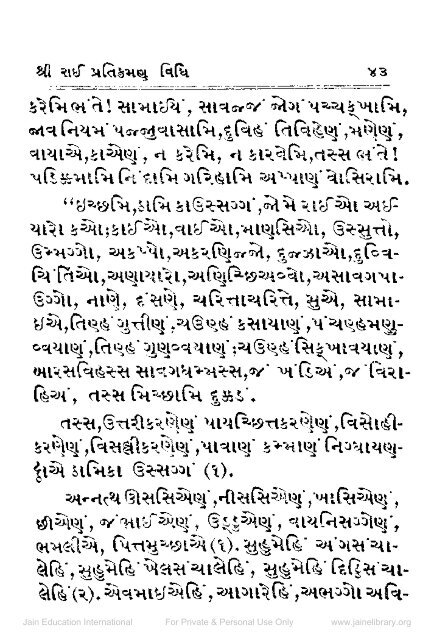 શ્રી રાઈ પ્રતિક્રમણ વિધિ ૪૩
કરેમિભંતે! સામાઇયં, સાવજ્જં જોગં પચ્ચક્ખામિ,
જાવનિયમં પજ્જુવાસામિ,દુવિહં તિવિહેણં,મણેણં,
વાયાએ,કાએણં, ન કરેમિ, ન કારવેમિ,તસ્સ ભંતે!
પડિક્કમામિ નિંદામિ ગરિહામિ અપ્પાણં વોસિરામિ.
“ઇચ્છમિ,ઠામિ કાઉસ્સગ્ગં,જો મે રાઈઓ અઈ-
યારો કઓ;કાઈઓ,વાઈઓ,માણસિઓ, ઉસ્સુત્તો,
ઉમ્મગ્ગો, અકપ્પો,અકરણિજ્જો, દુજ્ઝાઓ,દુવ્વિ-
ચિંતિઓ,અણાયારો,અણિચ્છિઅવ્વો,અસાવગપા-
ઉગ્ગો, નાણે, દંસણે, ચરિત્તાચરિત્તે, સુએ, સામા-
ઇએ,તિણ્હં ગુત્તીણં,ચઉણ્હં કસાયાણં,પંચણ્હમણુ-
વ્વયાણં,તિણ્હં ગુણવ્વયાણં;ચઉણ્હંસિક્ખાવયાણં,
બારસવિહસ્સ સાવગધમ્મસ્સ,જં ખંડિઅં,જં વિરા-
હિઅં, તસ્સ મિચ્છામિ દુક્કડં.
તસ્સ,ઉત્તરીકરણેણં પાયચ્છિત્તકરણેણં,વિસોહી-
કરણેણં,વિસલ્લીકરણેણં,પાવાણં કમ્માણં નિગ્ઘાયણ-
ટ્ઠાએ ઠામિકા ઉસ્સગ્ગં (૧).
અન્નત્થ ઊસસિએણં,નીસસિએણં,ખાસિએણં,
છીએણં, જંભાઈએણં, ઉડ્ડુએણં, વાયનિસગ્ગેણં,
ભમલીએ, પિત્તમુચ્છાએ(૧). સુહુમેહિં અંગસંચા-
લેહિં,સુહુમેહિં ખેલસંચાલેહિં, સુહુમેહિં દિટ્ઠિસંચા-
લેહિં(૨). એવમાઇએહિં,આગારેહિં,અભગ્ગો અવિ-
Jain Education International For Private & Personal Use Only www.jainelibrary.org